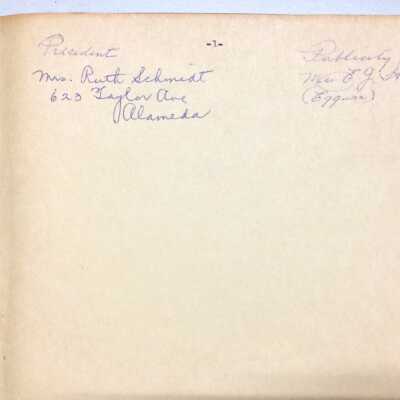 -1-
President
Mrs. Ruth Schmidt
623 Taylor Ave
Alameda
Publicity
Mrs E. J.